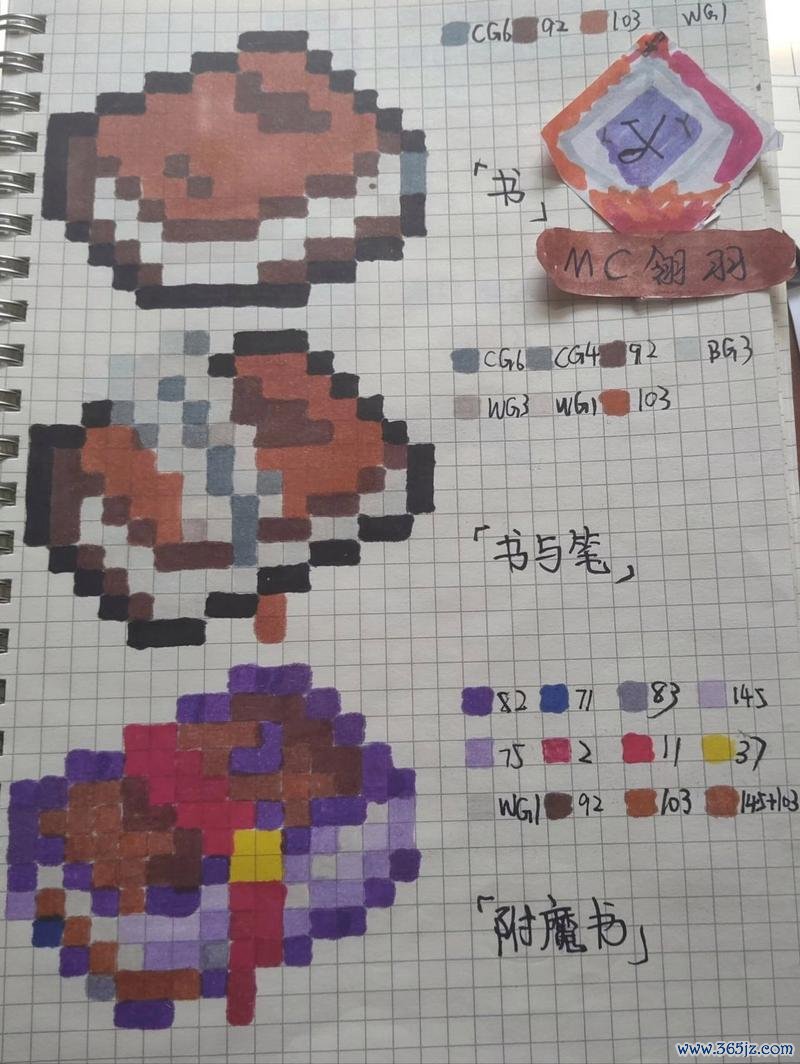 CG6 92 103 WG1
「书」
XY
MC翎羽
CG6 CG4 92 BG3
WG3 WG1 103
「书与笔」
82 71 83 145
75 2 11 37
WG1 92 103 145+103
「附魔书」
www.365jz.com